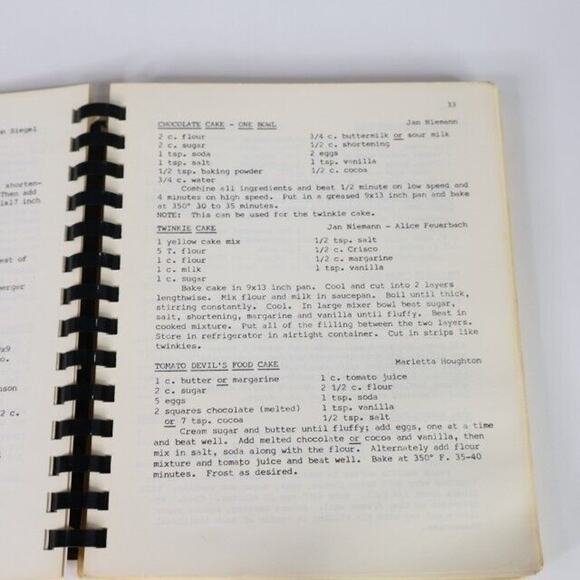 n Siegel
shorten-
Then add
1x17 inch
est of
berger
9x9
o.
nson
2 c.
33
CHOCOLATE CAKE - ONE BOWL Jan Niemann
2 c. flour 3/4 c. buttermilk or sour milk
2 c. sugar 1/2 c. shortening
1 tsp. soda 2 eggs
1 tsp. salt 1 tsp. vanilla
1/2 tsp. baking powder 1/2 c. cocoa
3/4 c. water
Combine all ingredients and beat 1/2 minute on low speed and
4 minutes on high speed. Put in a greased 9x13 inch pan and bake
at 350° 30 to 35 minutes.
NOTE: This can be used for the twinkie cake.
TWINKIE CAKE Jan Niemann - Alice Feuerbach
1 yellow cake mix 1/2 tsp. salt
5 T. flour 1/2 c. Crisco
1 c. flour 1/2 c. margarine
1 c. milk 1 tsp. vanilla
1 c. sugar
Bake cake in 9x13 inch pan. Cool and cut into 2 layers
lengthwise. Mix flour and milk in saucepan. Boil until thick,
stirring constantly. Cool. In large mixer bowl beat sugar,
salt, shortening, margarine and vanilla until fluffy. Beat in
cooked mixture. Put all of the filling between the two layers.
Store in refrigerator in airtight container. Cut in strips like
twinkies.
TOMATO DEVIL'S FOOD CAKE Marietta Houghton
1 c. butter or margarine 1 c. tomato juice
2 c. sugar 2 1/2 c. flour
5 eggs 1 tsp. soda
2 squares chocolate (melted) 1 tsp. vanilla
or 7 tsp. cocoa 1/2 tsp. salt
Cream sugar and butter until fluffy; add eggs, one at a time
and beat well. Add melted chocolate or cocoa and vanilla, then
mix in salt, soda along with the flour. Alternately add flour
mixture and tomato juice and beat well. Bake at 350° F. 35-40
minutes. Frost as desired.